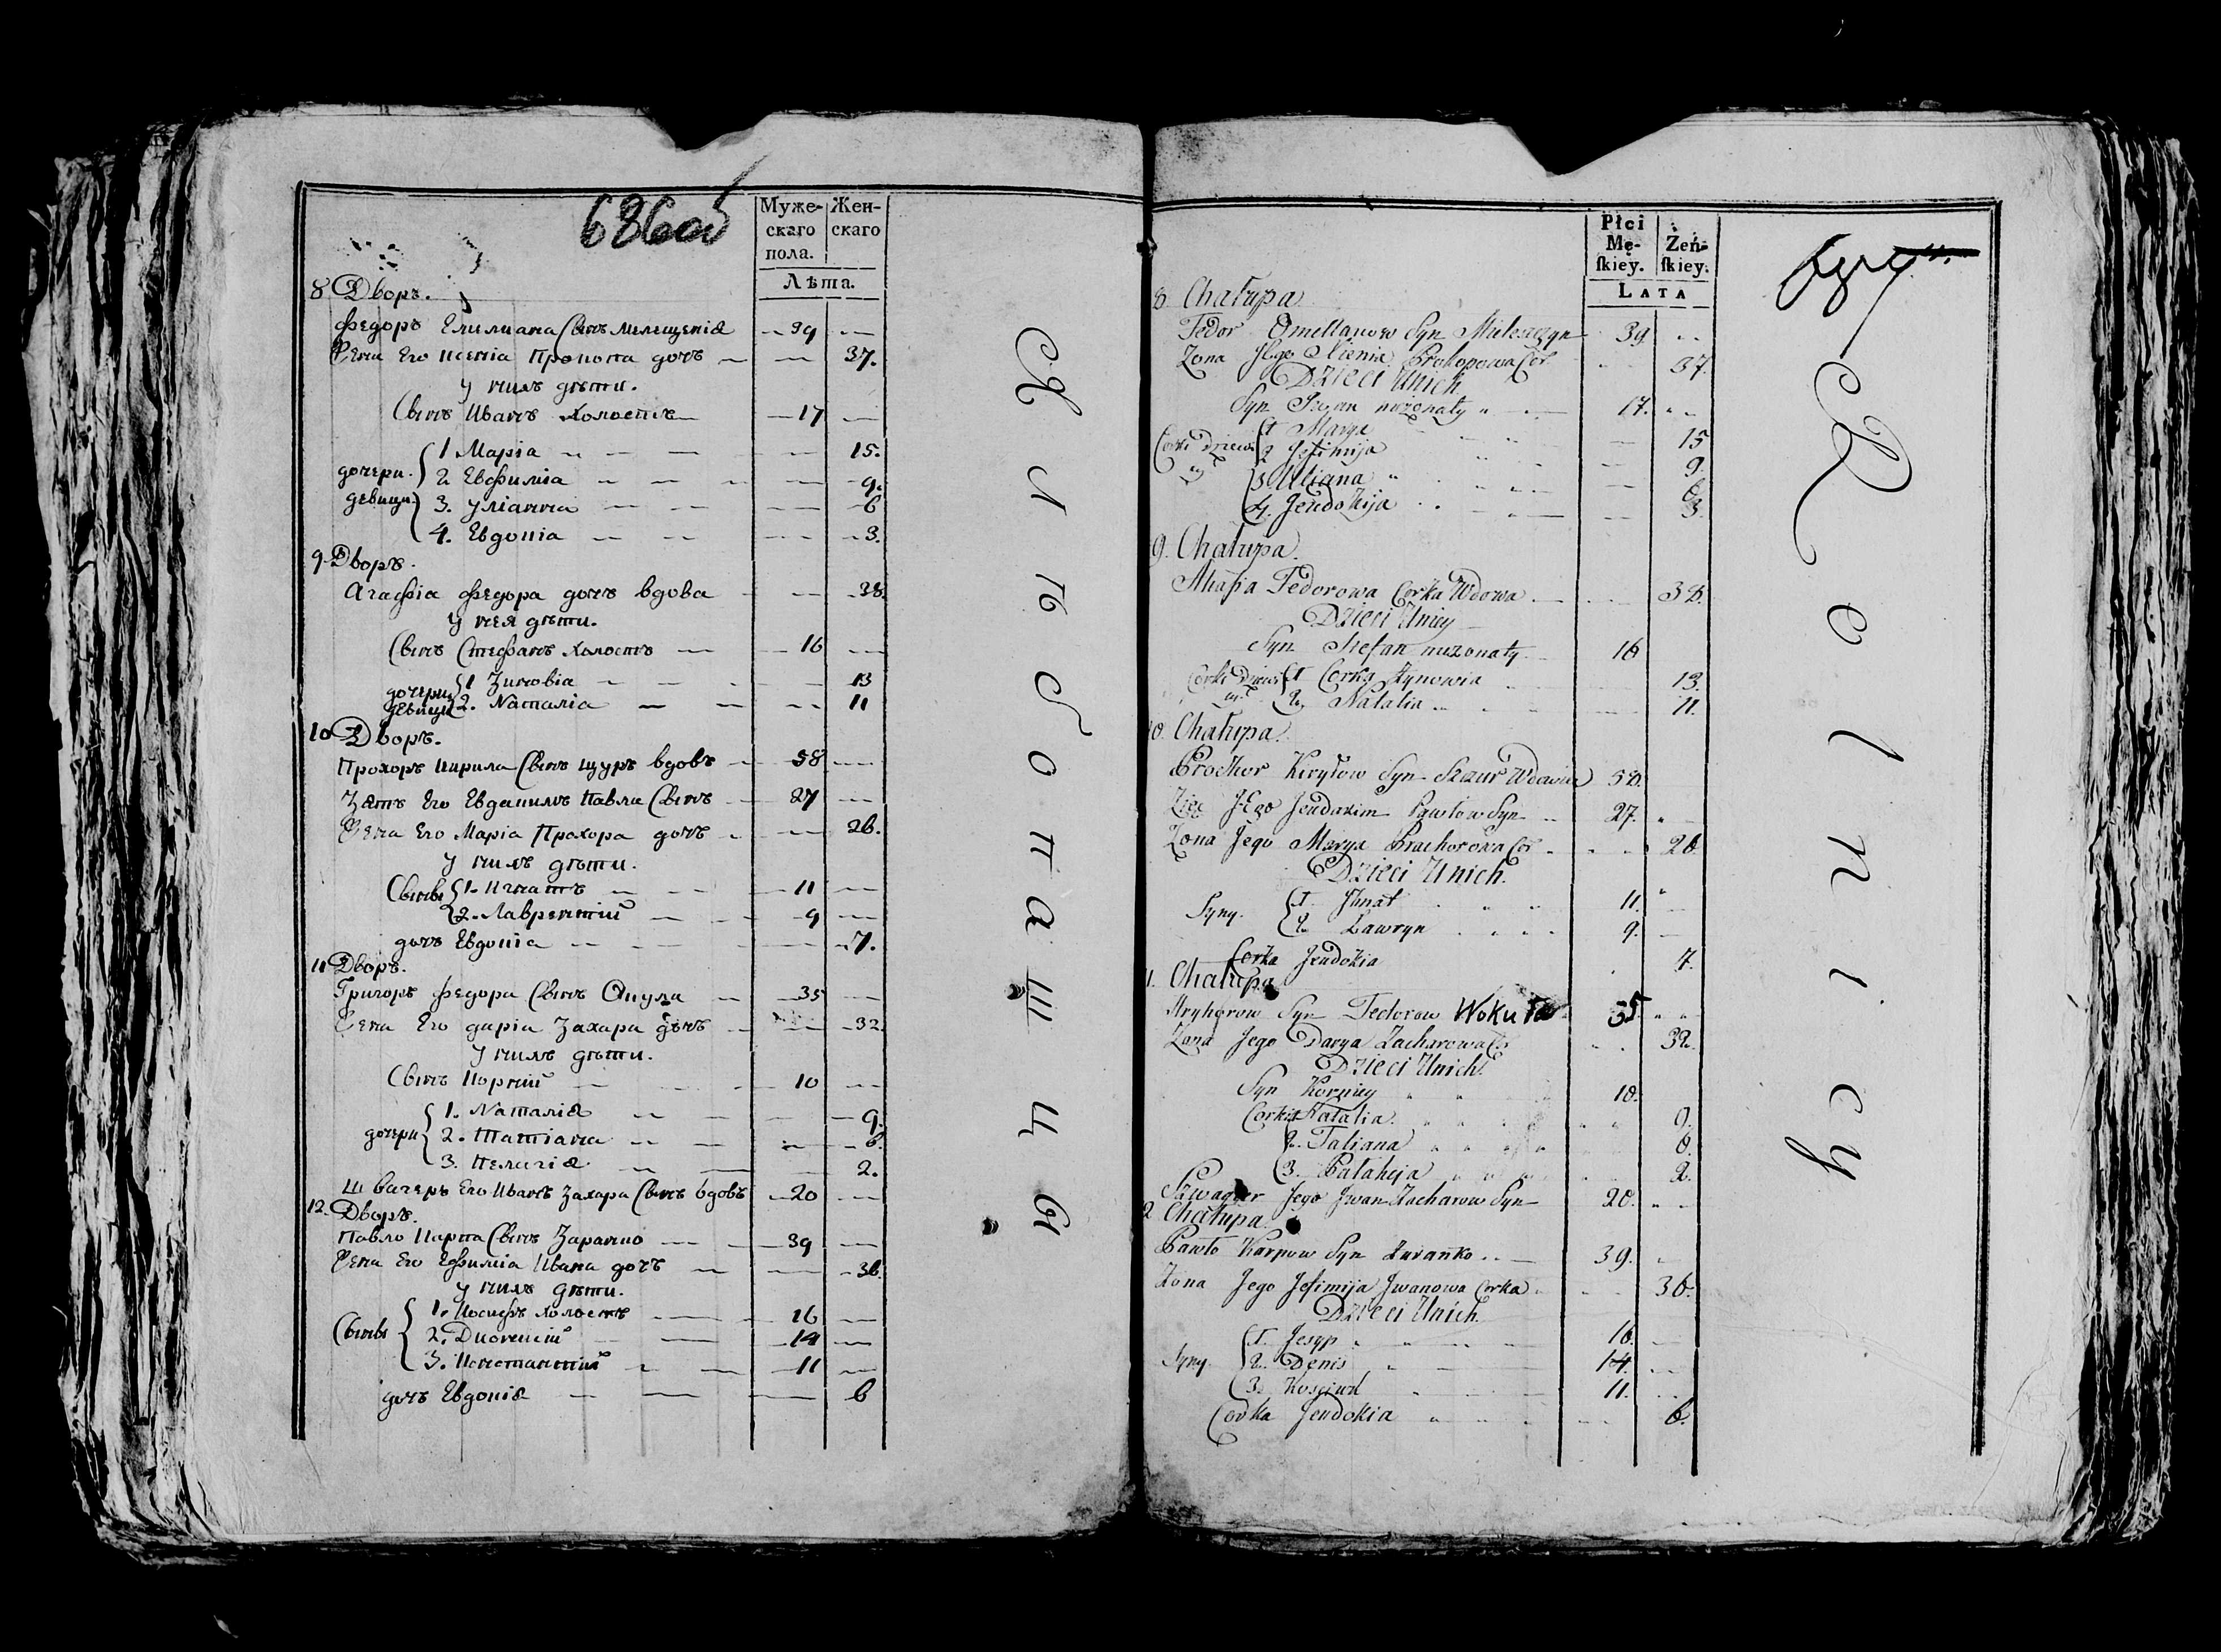 686 об
Муже-
скаго
пола.
Жен-
скаго
Лѣта.
8 Дворъ.
Федоръ Емилиана Сынъ Милещенія 39
Жена Его Ксенія Прокопа дочь 37.
у нихъ дѣти.
Сынъ Иванъ холостъ 17
дочери девици
1 Марія 15.
2 Евфимія 9.
3. Уліанна 6
4. Евдокія 3.
9. Дворъ.
Агафія Федора дочь вдова 38.
у нея дѣти.
Сынъ Стефанъ холостъ 16
дочери девици
1 Зиновія 13
2. Наталія 11
10 Дворъ.
Прохоръ Кирила Сынъ щуръ вдовъ 58
Зять Его Евдокимъ Павла Сынъ 27
Жена Его Марія Прохора дочь 26.
у нихъ дѣти.
Сыны
1. Игнатъ 11
2. Лаврентій 9
дочь Евдокія 7.
11 Дворъ.
Григоръ Федора Сынъ Окула 35
Жена Его дарія Захара дочь 32
у нихъ дѣти.
Сынъ Корній 10
дочери
1. Наталія 9.
2. Татіана 6.
3. Пелагія 2.
Швагеръ Его Иванъ Захара Сынъ вдовъ 20
12. Дворъ.
Павло Карпа Сынъ Заранко 39
Жена Его Ефимія Ивана дочъ 36.
у нихъ дѣти.
Сыны
1. Иосифъ холостъ 16
2. Дионисій 14
3. Константій 11
дочь Евдокія 6
Клѣбопашцы
Płci
Mę-
ſkiey.
Żeń-
ſkiey.
LATA
8 Chałupa
Fedor Omellanow Syn Mileszczyn 39
Zona Jego Xienia Prokopowa Cor. 37.
Dzieci Unich
Syn Iwan niezonaty 17.
Corki Dziewi cy
1 Marya 15
2 Jefimija 9.
3 Uliana 6.
4. Jewdokija 3.
9. Chałupa.
Ahafia Fedorowa Corka Wdowa 38.
Dzieci Uniey
Syn Stefan niezonaty 16
Corki Dziewi cy
1 Corka Zynowia 13.
2. Natalia 11.
10. Chałupa.
Prochor Kiryłow Syn Szczur Wdowiec 58.
Zięc Jego Jewdokim Pawłow Syn 27.
Zona Jego Marya Prochorowa Cor 26.
Dzieci Unich.
Syny.
1. Ihnat 11.
2. Lawryn 9.
Corka Jewdokia 7.
11. Chałupa
Hryhorow Syn Fedorow Wokuła 35.
Zona Jego Darya Zacharowa Co 32.
Dzieci Unich.
Syn Korniey 10.
Corki 1 Natalia. 9.
2. Tatjana 6.
3. Pałaheja 2.
Szwagier Jego Jwan Zacharow Syn 20.
12 Chałupa.
Pawło Karpow Syn Zarańko 39.
Zona Jego Jefimija Jwanowa Corka 36.
Dzieci Unich.
Syny
1. Jesyp 16.
2. Denis 14.
3. Kosciuk 11.
Corka Jewdokia 6.
Rolnicy